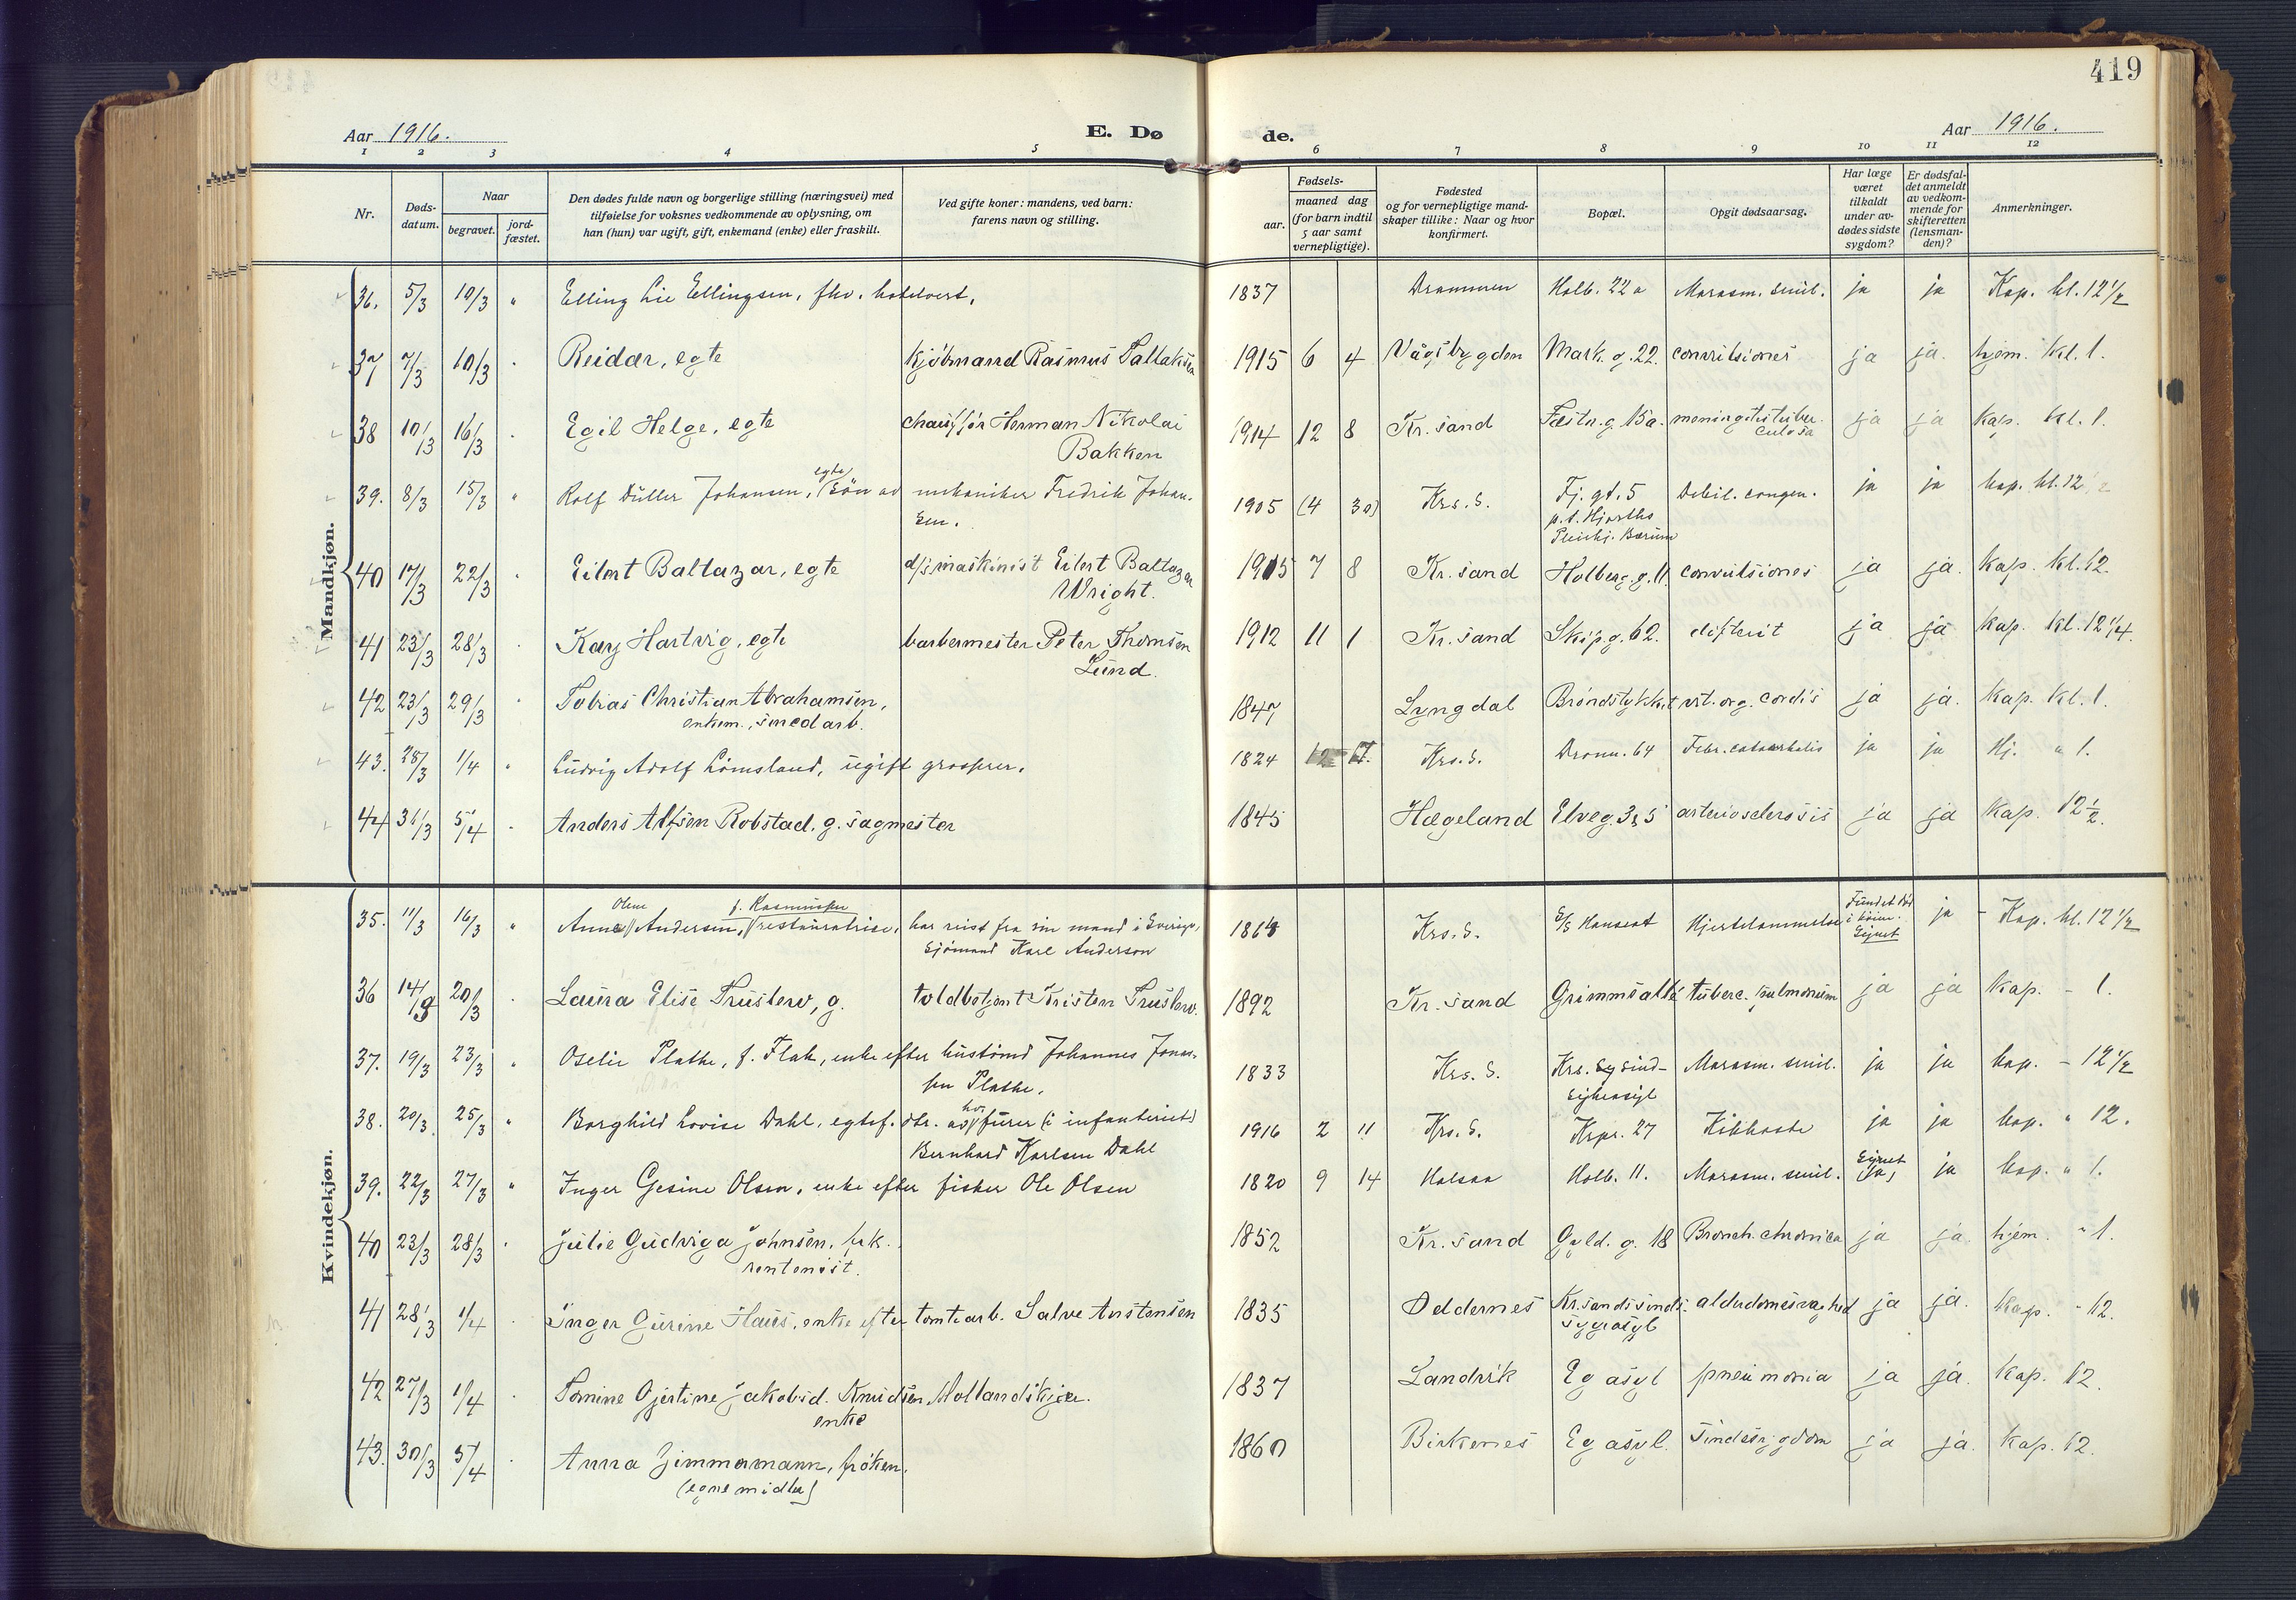 419
Aar 1916.
E. Dø
de.
Aar 1916.
1 2 3 4 5 6 7 8 9 10 11 12
Nr.
Døds-
datum.
Naar
begravet.
jord-
fæstet.
Den dødes fulde navn og borgerlige stilling (næringsvei) med
tilføielse for voksnes vedkommende av oplysning, om
han (hun) var ugift, gift, enkemand (enke) eller fraskilt.
Ved gifte koner: mandens, ved barn:
farens navn og stilling.
Fødsels-
aar.
maaned dag
(for barn indtil
5 aar samt
vernepligtige).
Fødested
og for vernepligtige mand-
skaper tillike: Naar og hvor
konfirmert.
Bopæl.
Opgit dødsaarsag.
Har læge
været
tilkaldt
under av-
dødes sidste
sygdom?
Er dødsfal-
det anmeldt
av vedkom-
mende for
skifteretten
(lensman-
den)?
Anmerkninger.
Mandkjøn.
36. 5/3 10/3 " Elling Lie Ellingsen, fhv. hotelvert. 1837 Drammen Holb. 22a Marasm. senil. ja ja Kap. kl. 12 1/2
37 7/3 10/3 Reidar, egte kjøbmand Rasmus Tallaksen 1915 6 4 Vågsbygden Mark. g. 22. convulsiones ja ja. hjem. kl. 1.
38 10/3 16/3 Egil Helge, egte chauffør Herman Nikolai 1914 12 8 Kr.sand Fæstn. g. 15a. meningitis tuber-
Bakken culosa ja ja kap. kl. 1.
39. 8/3 15/3 " Rolf Düller Johansen, egte søn av mekaniker Fredrik Johan- 1905 (4 30) Krs. S. Fj. gt. 5 Debil. congen. ja ja kap. kl. 12 1/2
sen. p.t. Hjorths
Pleiehj. Bærum
40 17/3 22/3 Eilert Baltazar, egte d/s maskinist Eilert Baltazar 1915 7 8 Kr.sand Holberg. g. 11. convulsiones ja ja. kap. kl. 12.
Wright.
41 23/3 28/3 Kay Hartvig, egte barbermester Peter Thomsen 1912 11 1 Kr.sand Skip. g. 62. difterit ja ja kap. kl. 12 1/4.
Lund.
42 23/3 29/3 Tobias Christian Abrahamsen, 1847 Lyngdal Brøndstykket vit. org. cordis ja ja. kap. kl. 1.
enkem., smedarb.
43. 28/3 1/4 " Ludvig Adolf Lømsland, ugift grosserer. 1824 Krs. S. Dronn. 64 Febr. catarrhalis ja ja Hj. " 1.
44 31/3 5/4 Anders Alfsen Robstad, g. sagmester 1845 Hægeland Elveg. 35 arteriosclerosis ja ja kap. 12 1/2.
Kvindekjøn.
35. 11/3 16/3 " Anna Oline Andersen, f. Rasmussen restauratrise, har reist fra sin mand i Sverige, Krs. S. S/S Hanseat Hjertelammelse Fundet død
i køien.
Signet ja - Kap. kl. 12 1/2
sjømand Karl Anderson
36 14/3 20/3 Laura Elise Truslew, g. toldbetjent Kristen Truslew. 1892 Kr.sand Grimmsallé tuberc. pulmonum ja ja kap. - 1.
37. 19/3 23/3 " Oselie Plathe, f. Flak, enke efter hustømd Johannes Jonas- 1833 Krs. S. Krs. sind- Marasm. senil. ja ja kap. - 12 1/2
sen Plathe.
38. 20/3 25/3 " Borghild Lovise Dahl, egtef. dtr. av furer (i infanteriet) 1916 2 11 Krs. S. Krpr. 27 Kikhoste ja ja kap. " 12.
Bernhard Karlsen Dahl
39. 22/3 27/3 " Inger Gesine Olsen, enke efter fisker Ole Olsen 1820 9 14 Halsaa Holb. 11. Marasm. senil. Signet
(ja) ja kap. " 1.
40 23/3 28/3 Julie Gudviga Johnsen, frk. 1852 Kr.sand Gyld. g. 18 Bronch. chronica ja ja. hjem. " 1.
rentenist.
41 28/3 1/4 Inger Gurine Haus, enke efter tomtearb. Salve Anstensen 1835 Oddernes Kr.sands sinds- alderdomssvaghed ja ja. kap. - 12.
sygeasyl
42 27/3 1/4 Tomine Gjertine Jakobsd. Knudsen Mollandskjær. 1837 Landvik Eg asyl pneumonia ja ja. kap. 12.
enke
43. 30/3 5/4 Anna Zimmermann, frøken. 1860 Birkenes Eg asyl. sindssygdom ja ja. kap. 12.
(egne midler)